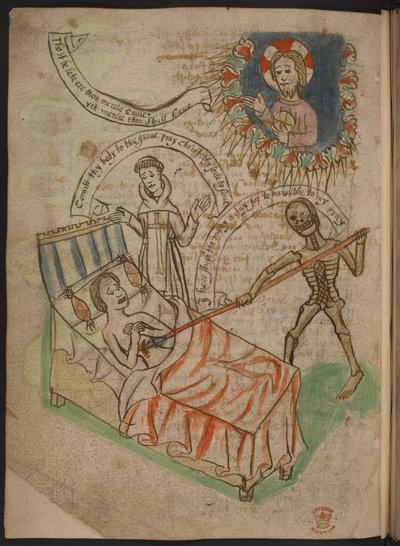 Tho it be late ere thou mercie craue
yet mercie thou shall haue
Comitt thy body to the graue pray Christ thy soule to saue
I haue sought the many a day for to haue the to my pray
BRITISH
MUSEUM